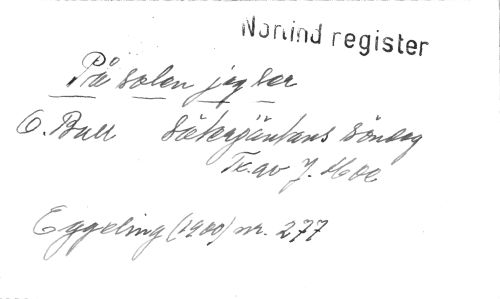 Norlind register
På solen jag ser
O. Bull Säterjäntans söndag
Tx. av J. Moe
Eggeling (1900) nr. 277